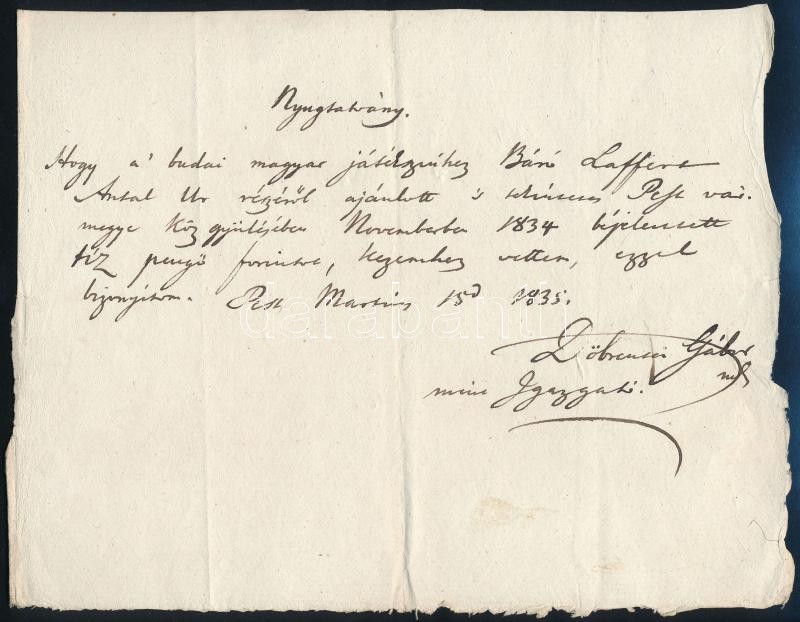 Nyugtatvány.
Hogy a' budai magyar játékszinhez Báró Laffert
Antal Ur részéről ajánlott 's tekintetes Pest vár-
megye Köz gyülésében Novemberben 1834 béjelentett
tíz pengő forintot, kezemhez vettem, ezzel
bizonyítom. Pest Martius 15d 1835.
Döbrentei Gábor
mint Igazgató.
darabanth